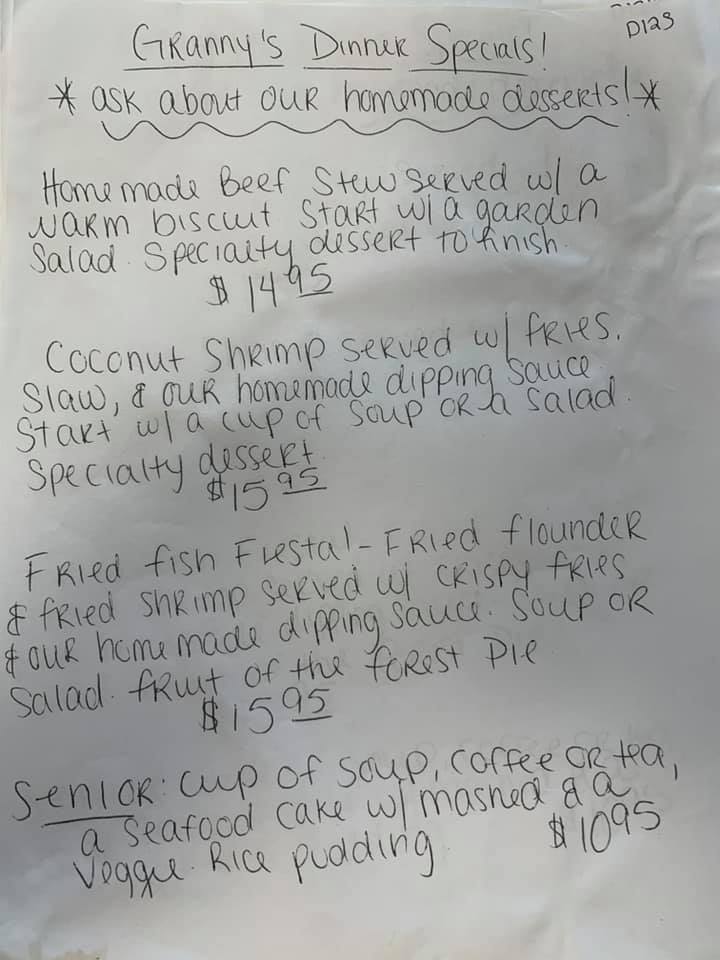 D123
Granny's Dinner Specials!
* ask about our homemade desserts! *
Homemade Beef Stew served w/ a
warm biscuit Start w/ a garden
Salad. Specialty dessert to finish.
$14.95
Coconut Shrimp served w/ fries,
Slaw, & our homemade dipping sauce.
Start w/ a cup of soup or a salad.
Specialty dessert.
$15.95
Fried fish Fiesta! - Fried flounder
& fried shrimp served w/ crispy fries
& our homemade dipping sauce. Soup or
Salad. fruit of the forest pie
$15.95
Senior: cup of soup, coffee or tea,
a seafood cake w/ mashed & a
Veggie. Rice pudding $10.95